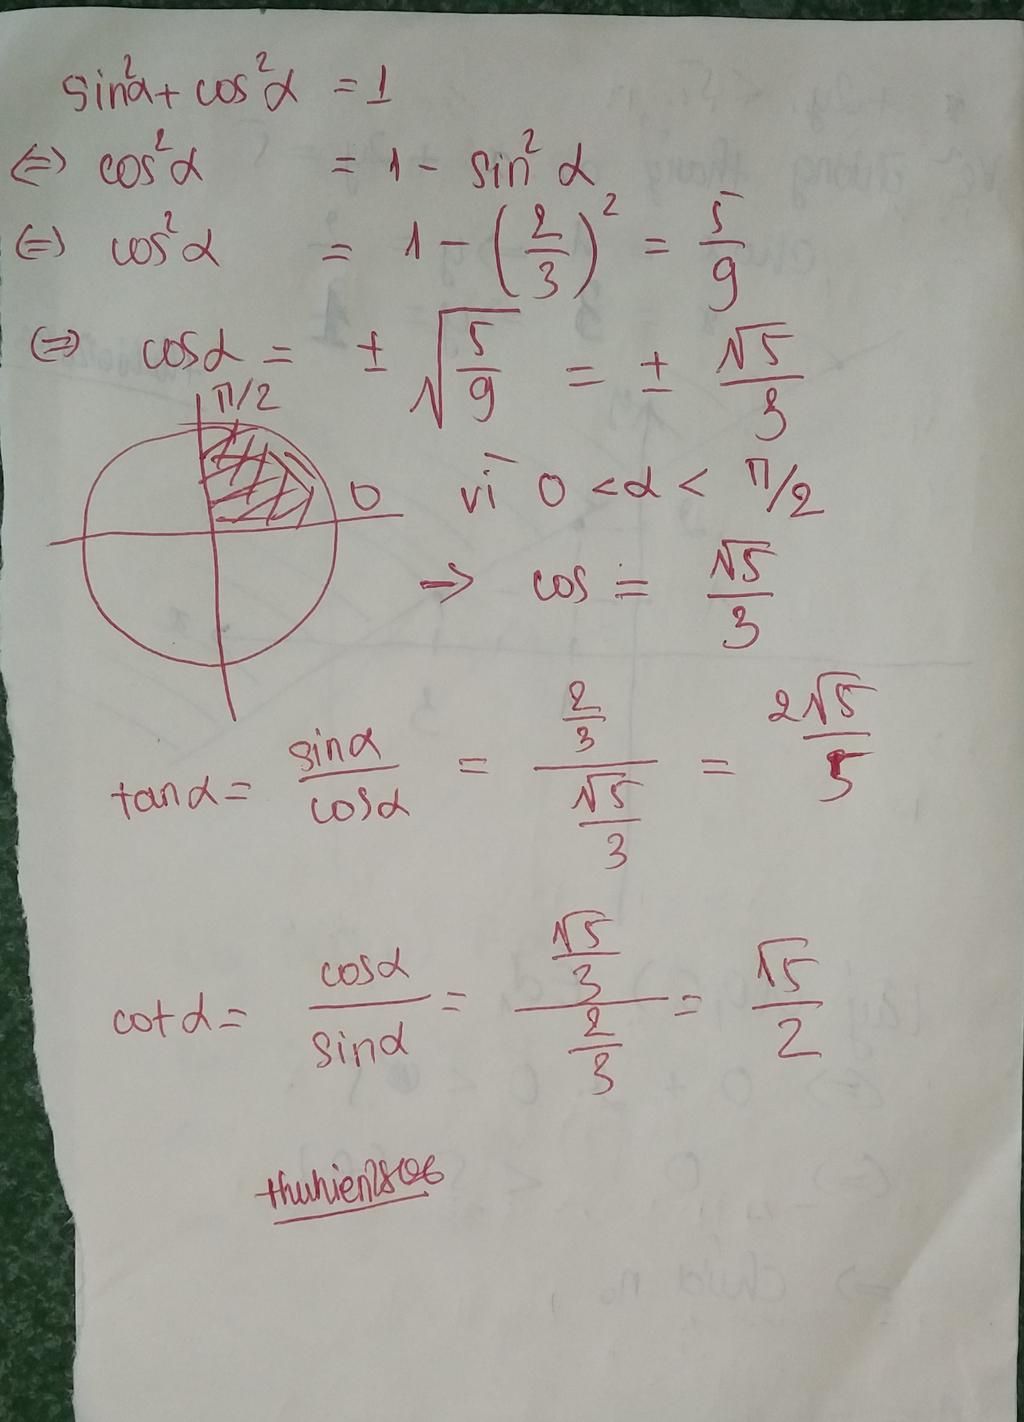 sin²α + cos²α = 1
⇔ cos²α = 1 - sin²α
⇔ cos²α = 1 - (2/3)² = 5/9
⇔ cosα = ± √(5/9) = ± √5/3
π/2
0
vì 0 < α < π/2
→ cos = √5/3
tanα = sinα/cosα = (2/3)/(√5/3) = 2√5/5
cotα = cosα/sinα = (√5/3)/(2/3) = √5/2